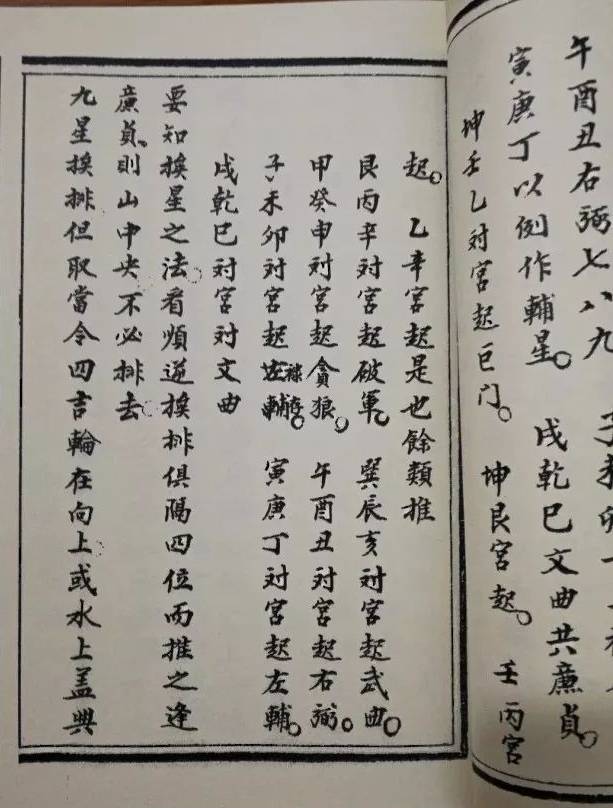 午酉丑右弼七八九 子
寅庚丁以例作輔星。 戌乾巳文曲共廉貞。
坤壬乙対宮起巨门。 坤艮宮起。 壬丙宮
起。 乙辛宮起是也餘類推
艮丙辛対宮起破軍。 巽辰亥対宮起武曲。
甲癸申対宮起貪狼。 午酉丑対宮起右弼。
子未卯対宮起祿存 寅庚丁対宮起左輔。
戌乾巳対宮対文曲
要知挨星之法看順逆挨排俱隔四位而推之逢
廉貞則山中央不必排去
九星挨排但取當令四吉輪在向上或水上盖興